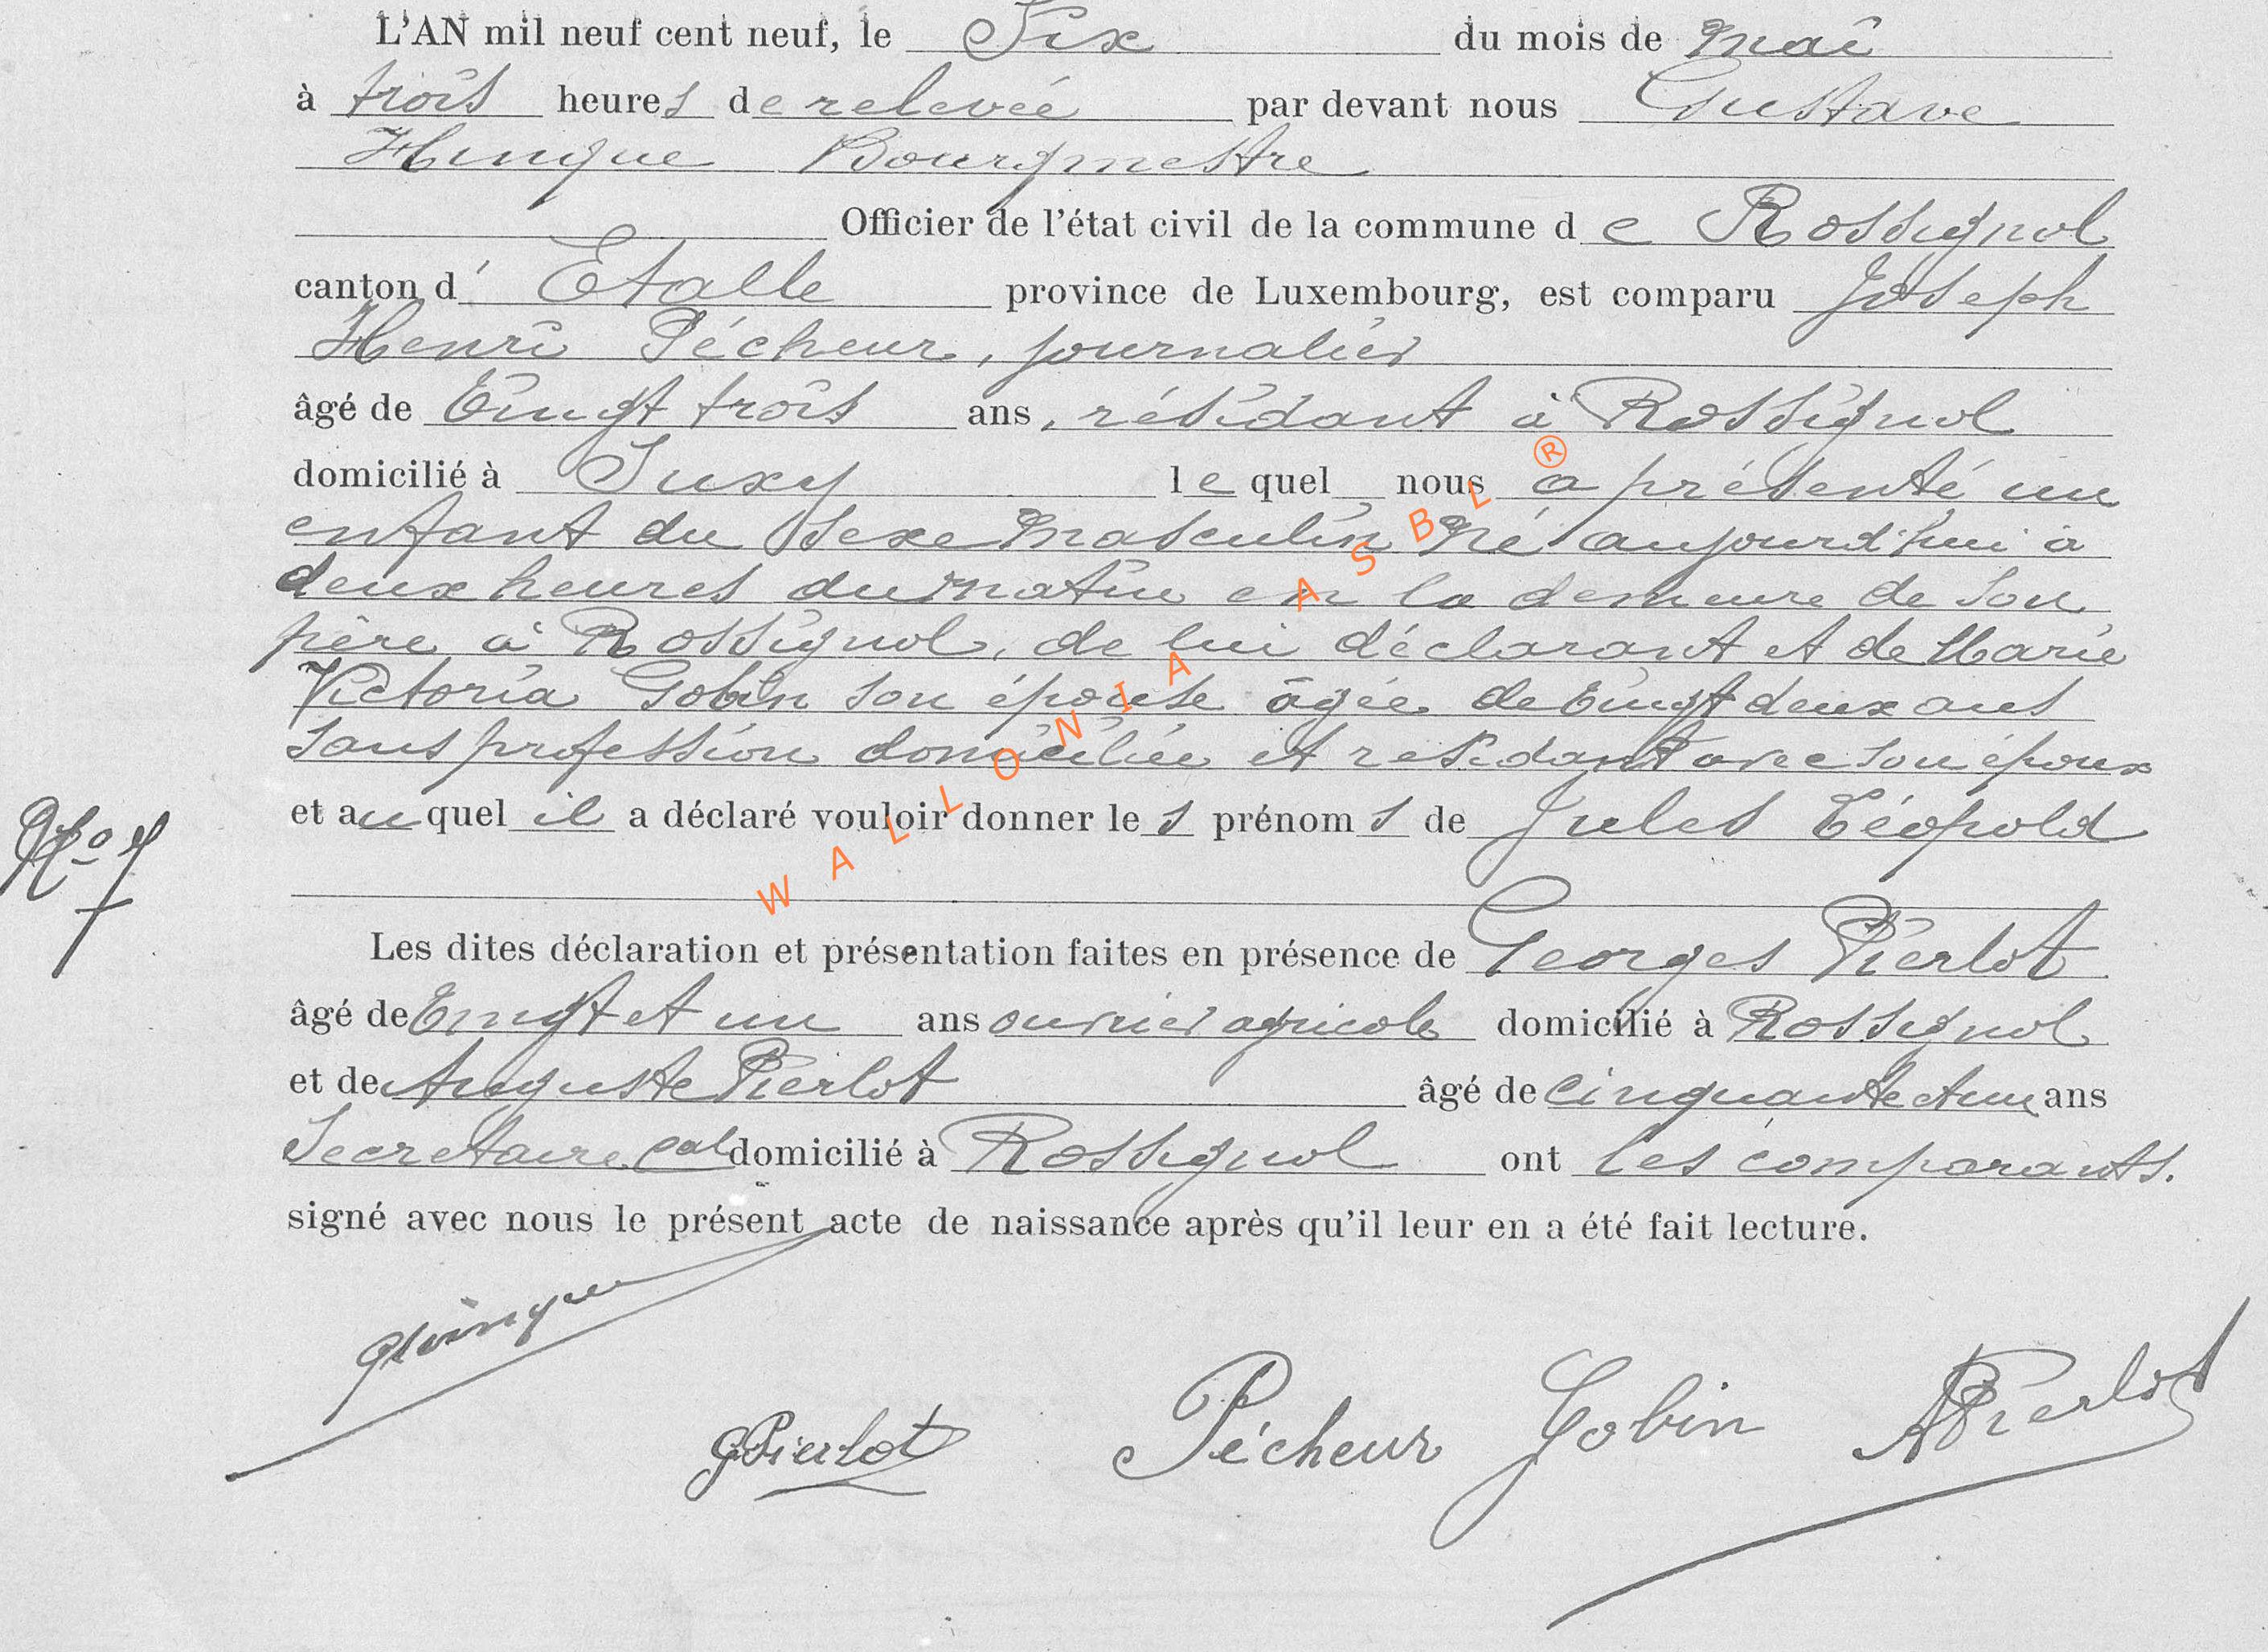 L'AN mil neuf cent neuf, le Six du mois de Mai
à trois heures de relevée par devant nous Gustave
Hinque Bourgmestre
Officier de l'état civil de la commune de Rossignol
canton d' Etalle province de Luxembourg, est comparu Joseph
Henri Pécheur, journalier
âgé de Vingt trois ans, résidant à Rossignol
domicilié à Suxy lequel nous a présenté un
enfant du sexe masculin né aujourd'hui à
deux heures du matin en la demeure de son
père à Rossignol, de lui déclarant et de Marie
Victoria Gobin son épouse âgée de vingt deux ans
sans profession domiciliée et residant avec son époux
et auquel il a déclaré vouloir donner les prénoms de Jules Léopold
No 7
Les dites déclaration et présentation faites en présence de Georges Pierlot
âgé de Vingt et un ans ouvrier agricole domicilié à Rossignol
et de Auguste Pierlot âgé de cinquante et un ans
Secretaire cal domicilié à Rossignol ont les comparants.
signé avec nous le présent acte de naissance après qu'il leur en a été fait lecture.
GHinque
GPierlot Pécheur Gobin APierlot
WALLONIA ASBL ®